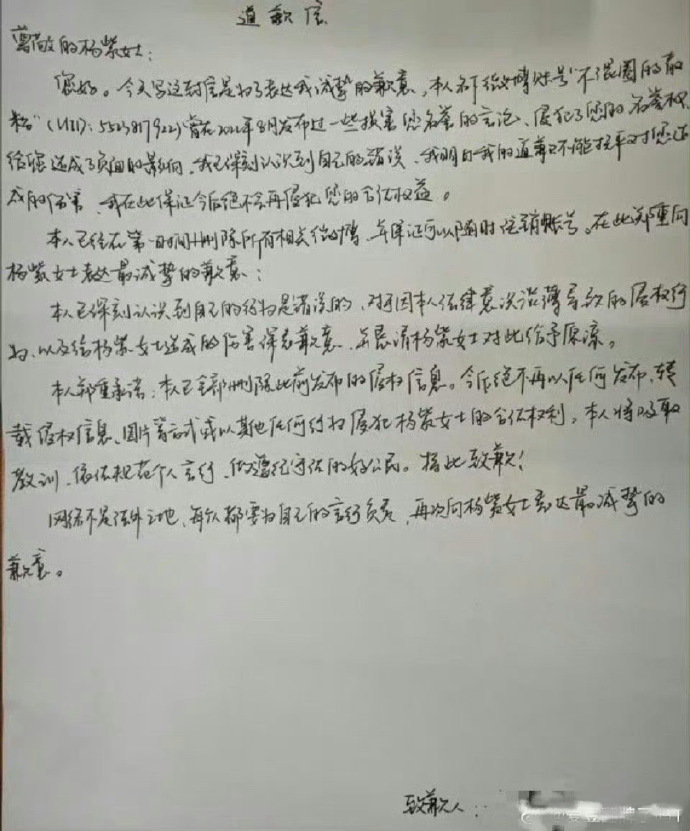 道歉信
尊敬的杨紫女士：
您好。今天写这封信是为了表达我诚挚的歉意，本人名下微博账号"不混圈的散
粉"(UID: 5523817922)曾在2021年8月发布过一些损害您名誉的言论、侵犯了您的名誉权
给您造成了负面的影响，我已深刻认识到自己的错误，我明白我的道歉已不能抚平对您造
成的伤害，我在此保证今后绝不会再侵犯您的合法权益。
本人已经在第一时间删除所有相关微博，并保证可以随时注销账号。在此郑重向
杨紫女士表达最诚挚的歉意：
本人已深刻认识到自己的行为是错误的，对于因本人法律意识淡薄导致的侵权行
为，以及给杨紫女士造成的伤害深表歉意，并恳请杨紫女士对此给予原谅。
本人郑重承诺，本人已全部删除此前发布的侵权信息。今后绝不再以任何发布、转
载侵权信息、图片等方式或以其他任何行为侵犯杨紫女士的合法权利，本人将吸取
教训、依法规范个人言行，做遵纪守法的好公民。特此致歉！
网络不是法外之地，每个人都要为自己的言行负责，再次向杨紫女士表达最诚挚的
歉意。
致歉人：